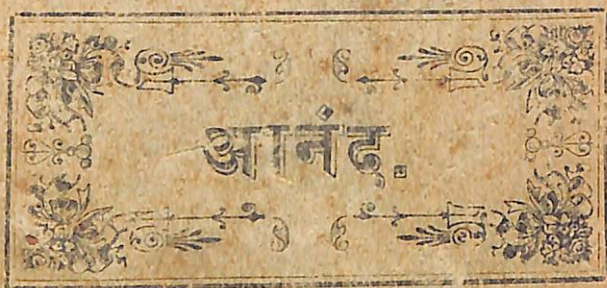 आनंद.